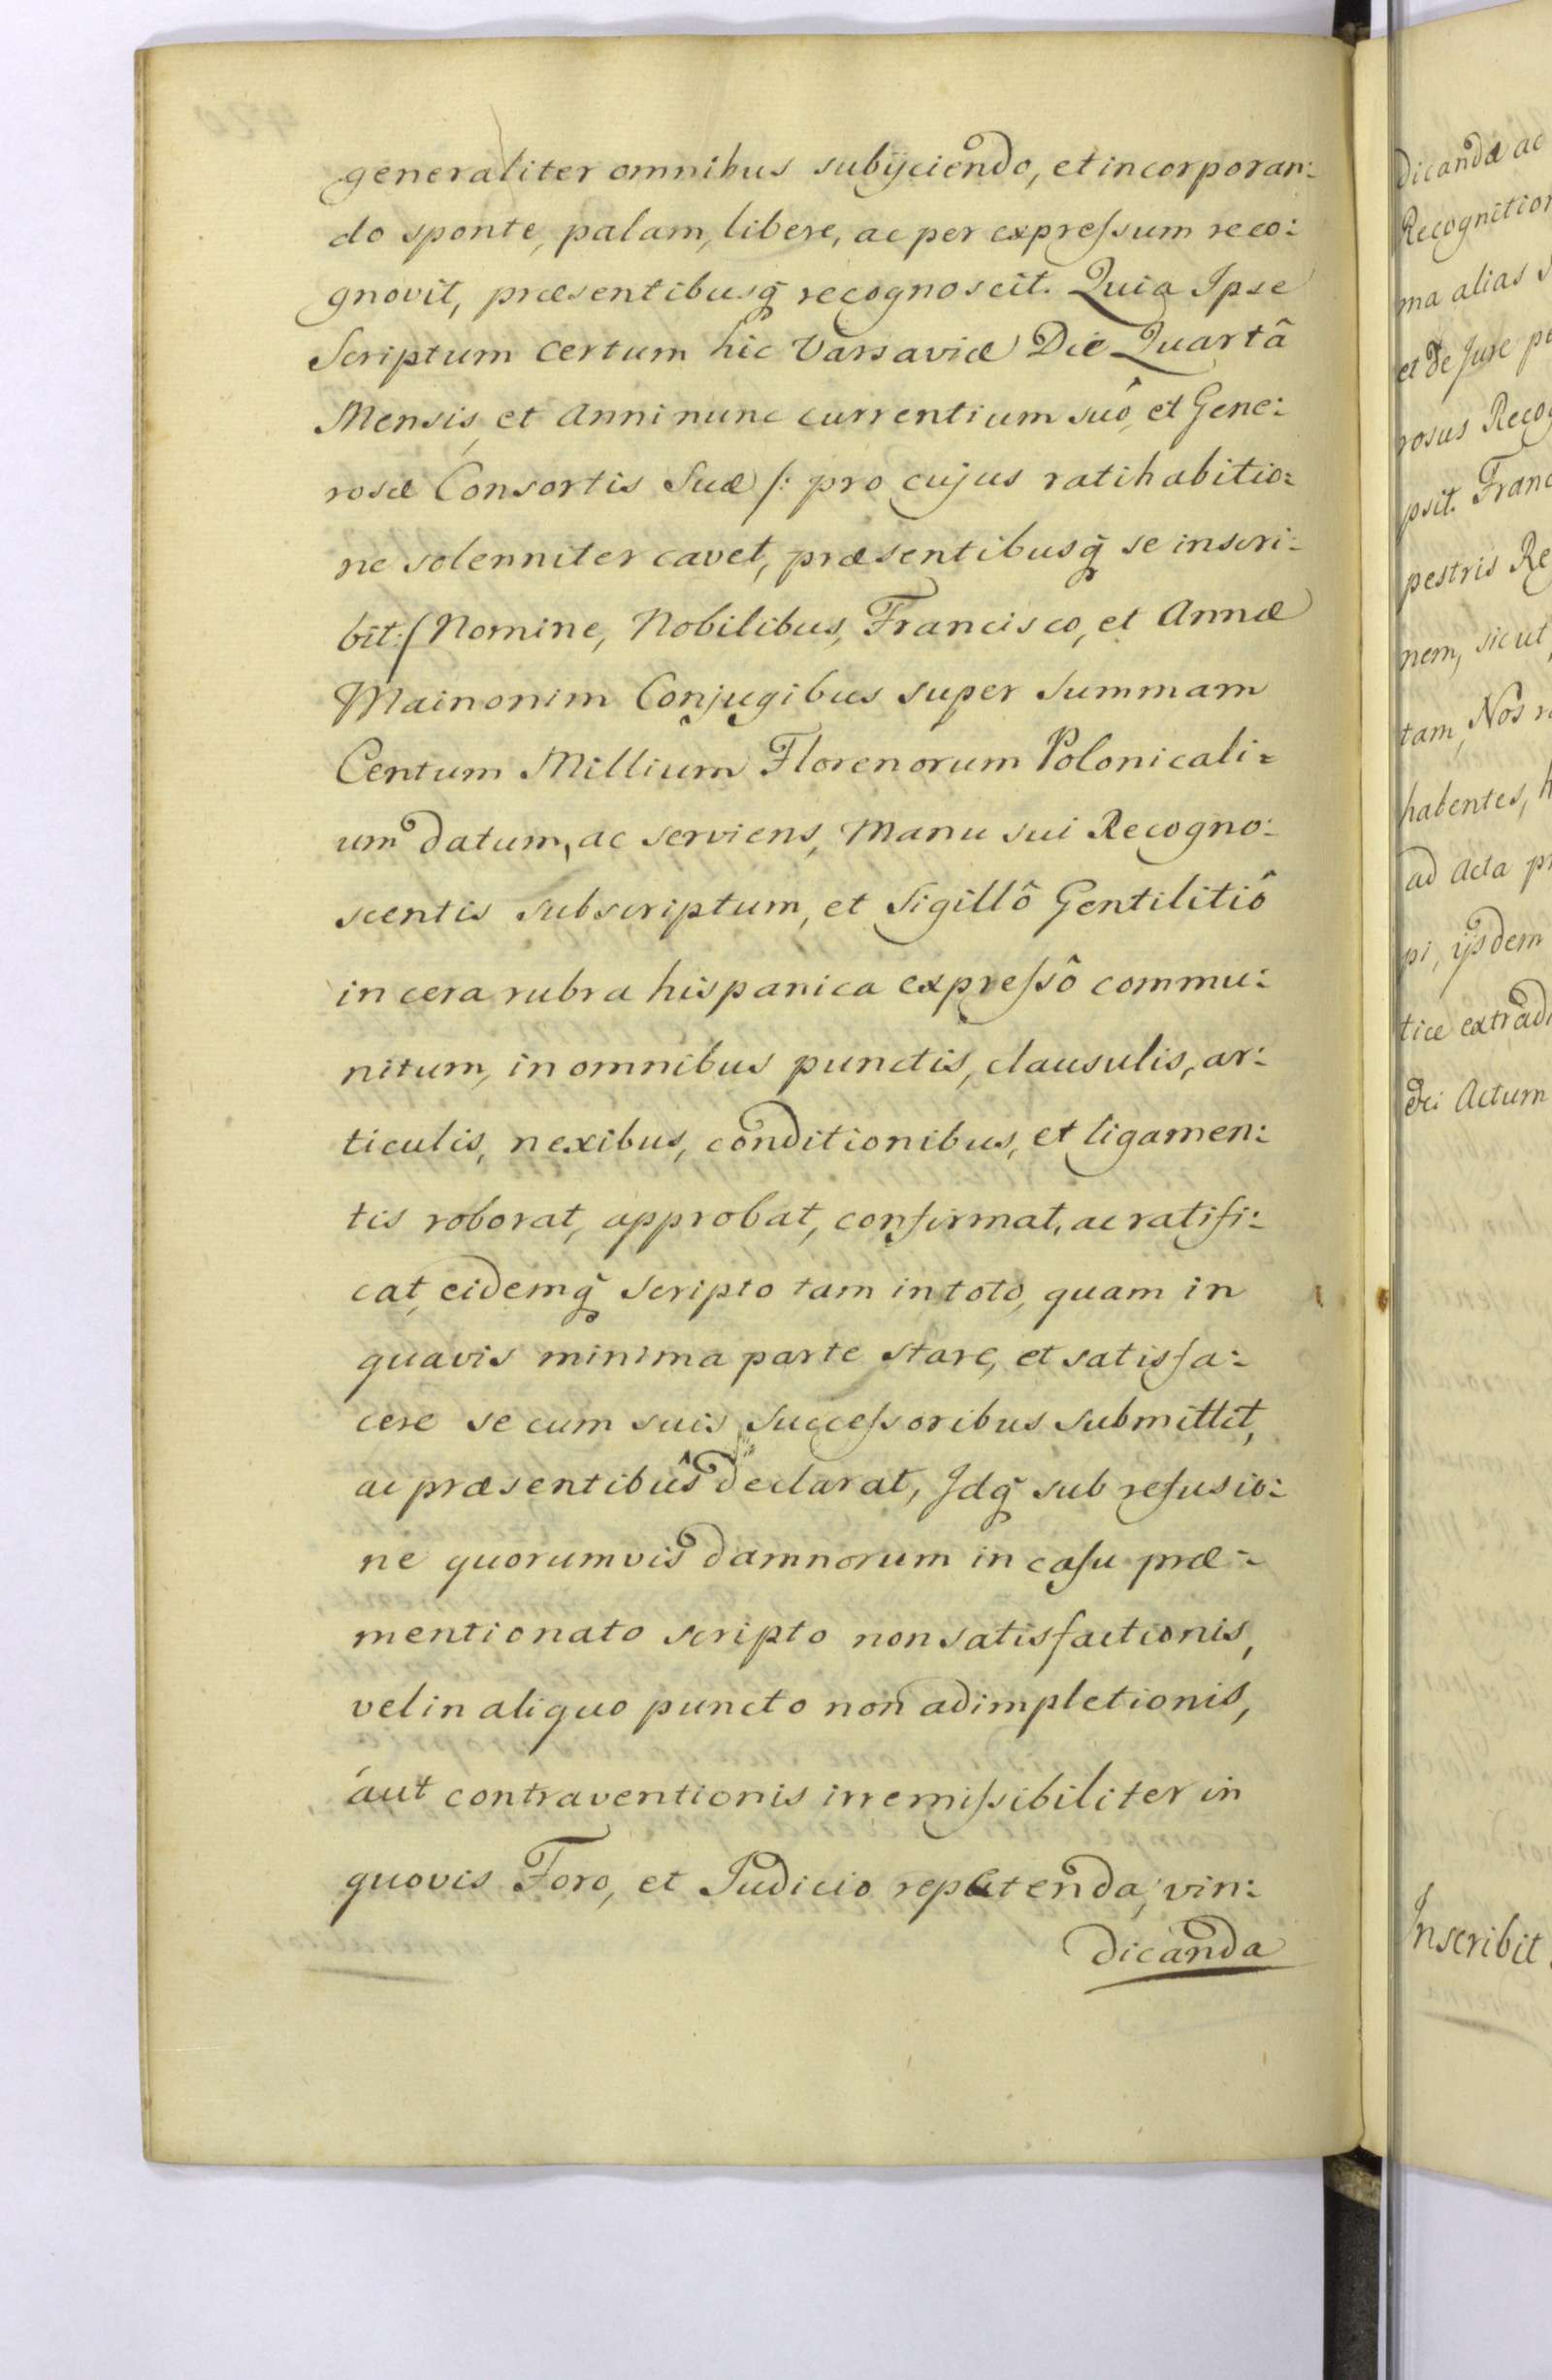 generaliter omnibus subijciendo, et incorporan:
do sponte, palam, libere, ac per expreſsum reco:
gnovit, præsentibusq̃ recognoscit. Quia Ipse
Scriptum certum hic Varsaviæ Die Quartâ
Mensis, et Anni nunc currentium suô, et Gene:
rosæ Consortis Suæ /: pro cujus ratihabitio:
ne solenniter cavet, præsentibusq̃ se inscri:
bit :/ Nomine, Nobilibus, Francisco, et Annæ
Mainonim Conjugibus super Summam
Centum Millium Florenorum Polonicali=
um datum, ac serviens, Manu sui Recogno:
scentis subscriptum, et Sigillô Gentilitiô
in cera rubra hispanica expreſsô commu:
nitum, in omnibus punctis, clausulis, ar:
ticulis, nexibus, conditionibus, et ligamen:
tis roborat, approbat, confirmat, ac ratifi:
cat, eidemq̃ Scripto tam in toto, quam in
quavis minima parte stare, et satisfa:
cere se cum suis Succeſsoribus Submittit,
ac præsentibûs declarat, Idq̃ sub refusio:
ne quorumvis damnorum in caſu præ=
mentionato scripto non satisfactionis,
vel in aliquo puncto non adimpletionis,
aut contraventionis irremiſsibiliter in
quovis Foro, et Judicio repetenda, vin:
dicanda
dicanda ac
Recognition
ma alias
et de Jure
rosus
psit. Franc
pestris Re
nem, sicut
tam, Nos
habentes,
ad Acta
pi, ijsdem
tice extrad
Actum
Inscribit